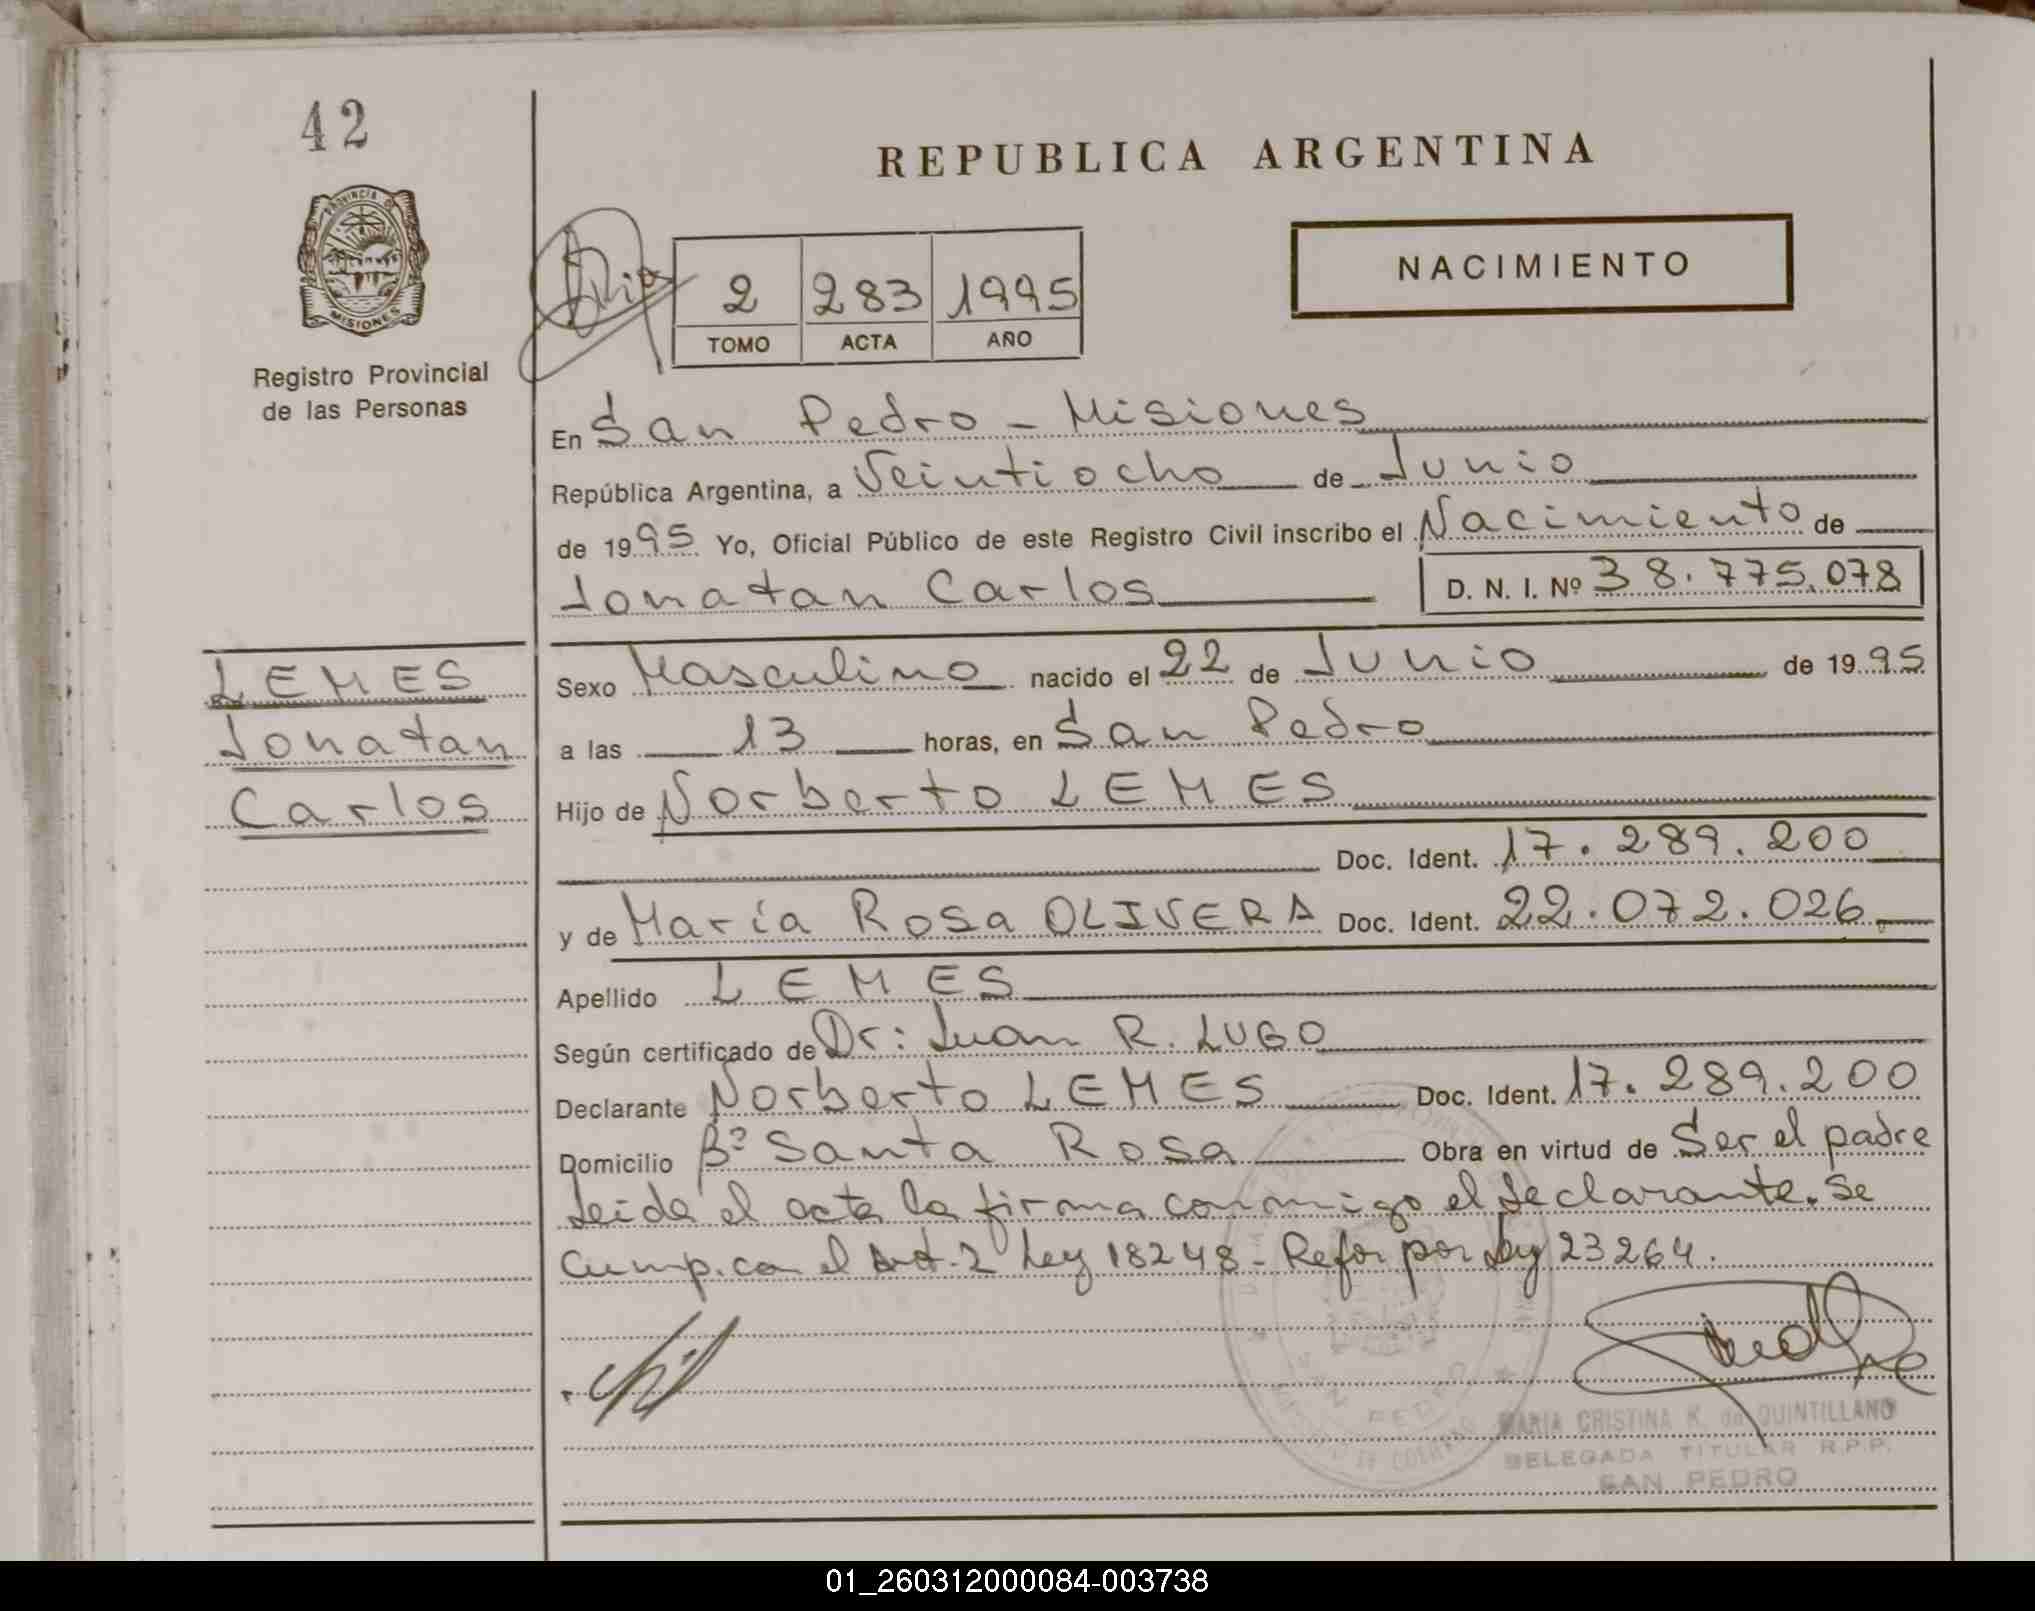 42
REPUBLICA ARGENTINA
PROVINCIA DE
MISIONES
Registro Provincial
de las Personas
NACIMIENTO
2 283 1995
TOMO ACTA AÑO
En San Pedro - Misiones
República Argentina, a Veintiocho de Junio
de 1995 Yo, Oficial Público de este Registro Civil inscribo el Nacimiento de
Jonatan Carlos D. N. I. Nº 38.775.078
LEMES
Jonatan
Carlos
Sexo Masculino nacido el 22 de Junio de 1995
a las 13 horas, en San Pedro
Hijo de Norberto LEMES
Doc. Ident. 17.289.200
y de María Rosa OLIVERA Doc. Ident. 22.072.026
Apellido LEMES
Según certificado de Dr: Juan R. LUGO
Declarante Norberto LEMES Doc. Ident. 17.289.200
Domicilio Bº Santa Rosa Obra en virtud de Ser el padre
Leida el acta la firma conmigo el declarante. Se
Cump. con el Art. 2 Ley 18248 - Refor por Ley 23264.
SAN PEDRO
MARIA CRISTINA K. de QUINTILLANO
DELEGADA TITULAR R.P.P.
SAN PEDRO
01_260312000084-003738